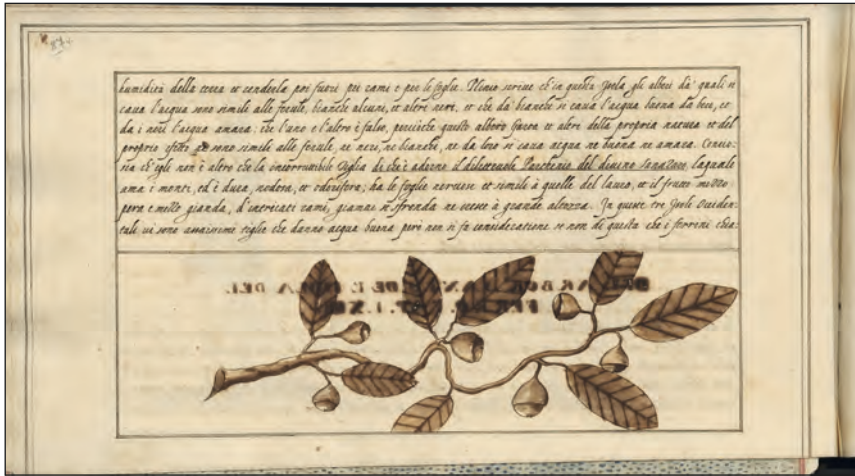 humidità della terra et renderla poi fuori pei rami e per le foglie. Plinio scrive ch'in questa Isola gli alberi da' quali si
caua l'acqua sono simili alle ferule, bianche alcuni, et altre nere, et che da' bianchi si caua l'acqua buona da bere, et
da i neri l'acqua amara; che l'uno e l'altro è falso, perciòche questo albero et altri della propria natura et del
proprio effetto sono simili alle ferule, ne neri, ne bianchi, ne da loro si caua acqua ne buona ne amara.
sia ch'egli non è altro che la incorruttibile Tiglia di che è adorno il diletteuole Partenio del diuino Sanazaro, laquale
ama i monti, ed è dura, nodosa, et odorifera; ha le foglie neruose et simili à quelle del lauro, et il frutto mezzo
pera e mezzo gianda, d'intricati rami, giamai si sfronda ne cresce à grande altezza. In queste tre Isole Occiden-
tali ui sono assaissimi tiglie che danno acqua buona però non si fa consideratione se non di questa che i ferrini chia-